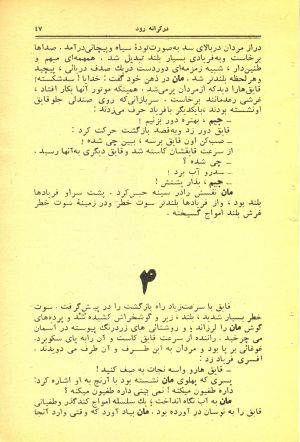 در کرانه رود ۴۷
دراز مردان در بالای سد به صورت تودهٔ سیاه و پیچانی درآمد. صداها
برخاست وبه فریادی بسیار بلند تبدیل شد. همهمه‌ای مبهم و
طنین‌دار، شبیه زمزمه‌ای دوردست دریك صدف دریائی، پیچید
وهر لحظه بلندتر شد. مان در ذهن خود گفت: خدایا! سدشکسته!
قایق‌هارا دیدکه از مردان پر می‌شد. همینکه موتور آنها بکار افتاد،
غرشی رعدمانند برخاست. سربازانی‌که روی صندلی جلوقایق
نشسته بودند، بایکدیگر بافریاد حرف می‌زدند:
ـ جیم، بهتره دور بزنیم!
قایق دور زد وبه‌قصد بازگشت حرکت کرد:
ـ صب‌کن اون قایق برسه، ببین چی شده!
از سرعت قایقشان کاسته شد وقایق دیگری به‌آنها رسید.
ـ چی شده؟
ـ سدرو آب برد!
ـ جیم، بدار پشتش!
مان نفسش رادر سینه حبس‌کرد. پشت سراو فریادها
بلند بود، واز فریادها بلندتر سوت خطر، ودر زمینهٔ سوت خطر
غرش بلند امواج گسیخته.
۴
قایق با سرعت‌زیاد راه بازگشت را در پیش‌گرفت. سوت
خطر بسیار شدید، بلند، زیر و گوشخراش کشیده شد و پرده‌های
گوش مان را لرزاند؛ و روشنائی های زردرنگ پیوسته در آسمان
می چرخید. راننده از سرعت قایق کاست و آن رابه پای سکوبرد.
غوغائی بر پا بود و مردان به این طـرف و آن طرف می دویدند.
افسری فریاد زد:
ـ قایق هارو واسه نجات به صف کنید!
پسری که پهلوی مان نشسته بود با آرنج به او اشاره کرد:
ـ طغیان میکنه! نمی بینی داره طغیون میکنه؟
مان به آب نگاه انداخت؛ یك سلسله امواج کندگذر وطغیانی
قایق را به نوسان در آورده بود. مان بیاد آورد که وقتی وارد آنجا